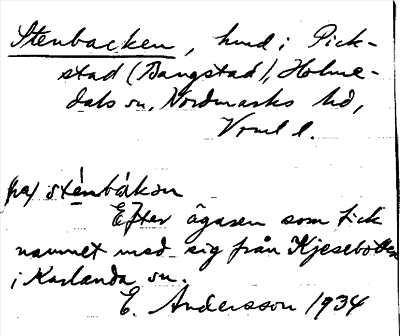 Stenbacken, hmd i Pick-
stad (Bangstad), Holme-
dals sn, Nordmarks hd,
Vrml l.
pa) sténbákən
Efter ägaren som fick
namnet med sig från Kjesebotten
i Karlanda sn.
E. Andersson 1934